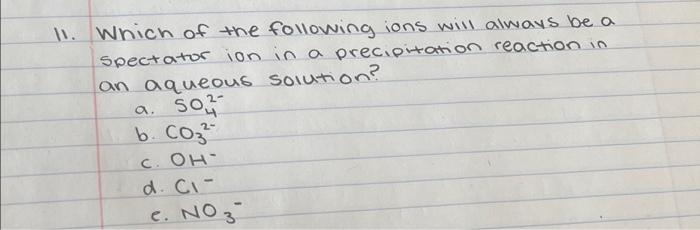 11. Which of the following ions will always be a
spectator ion in a precipitation reaction in
an aqueous solution?
a. SO₄²⁻
b. CO₃²⁻
c. OH⁻
d. Cl⁻
e. NO₃⁻